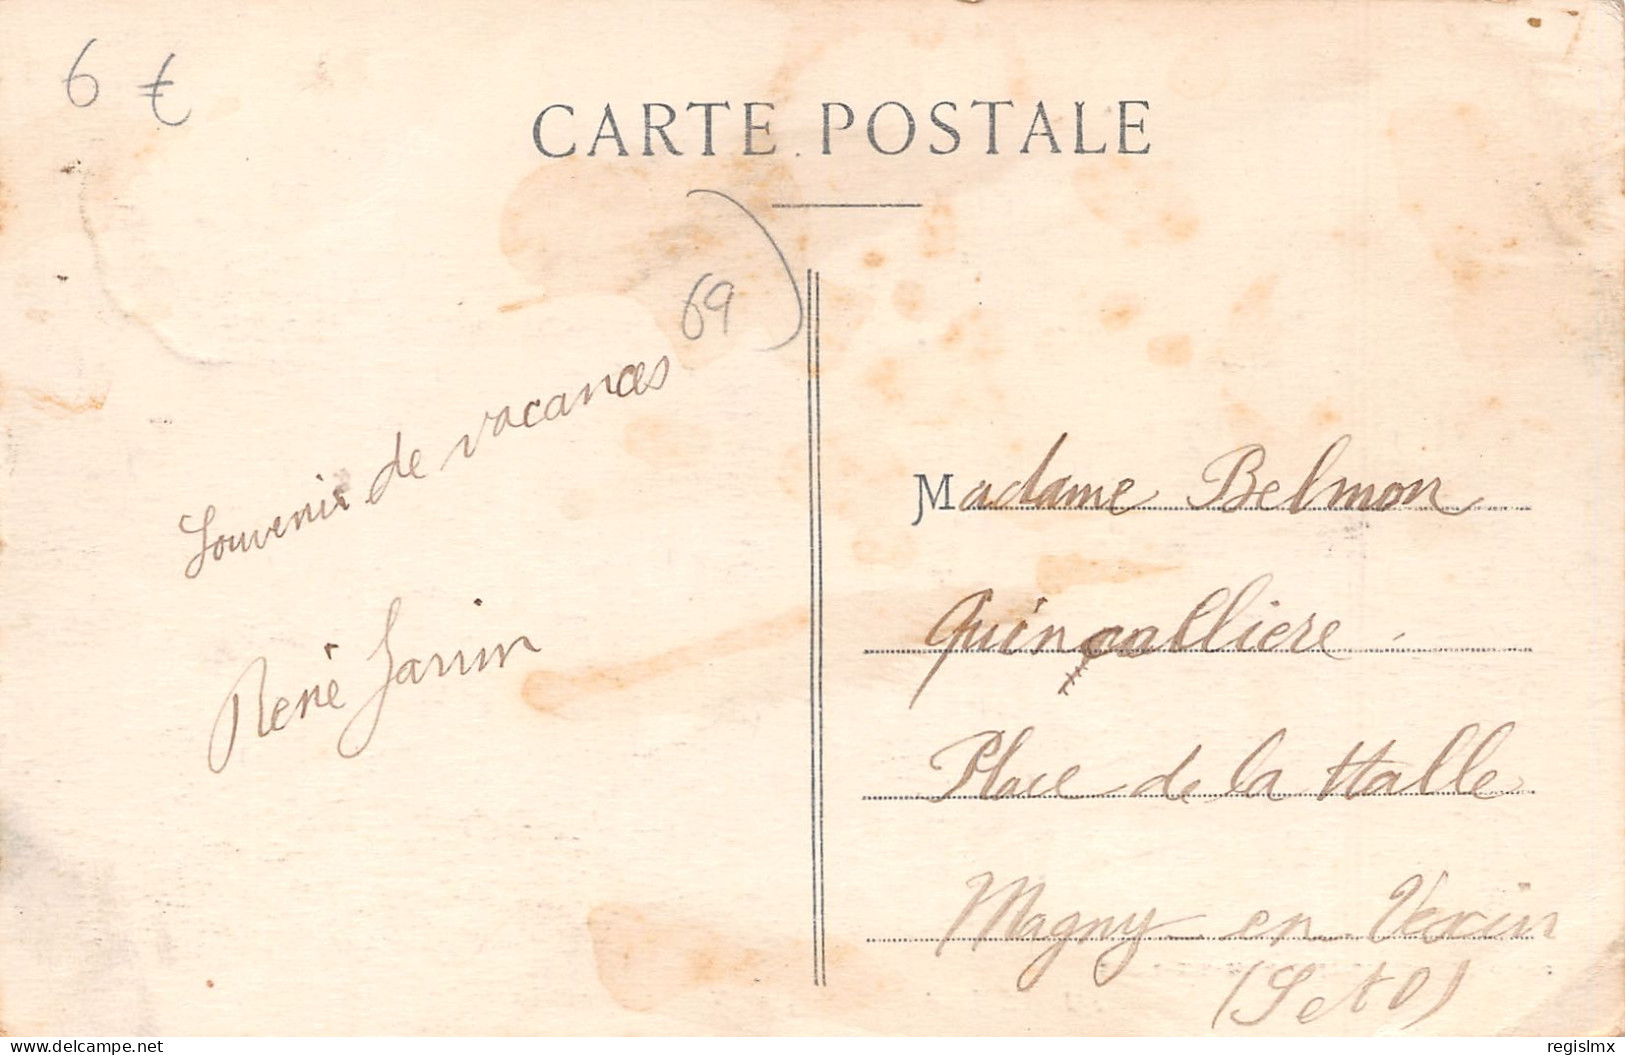 6 €
CARTE POSTALE
69
Souvenir de vacances
René
Madame Belmon
Place de la Halle
Magny en Vexin
(S et O)
www.delcampe.net
regislmx